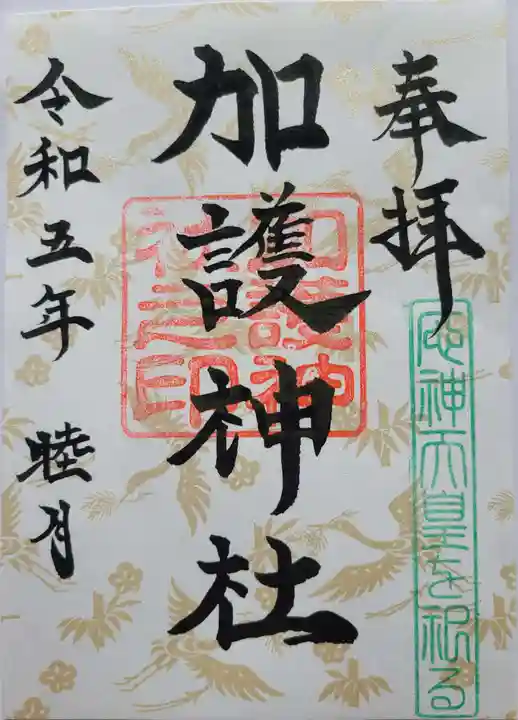 奉拝
応神天皇を祀る
加護神社
加護神社之印
令和五年 睦月